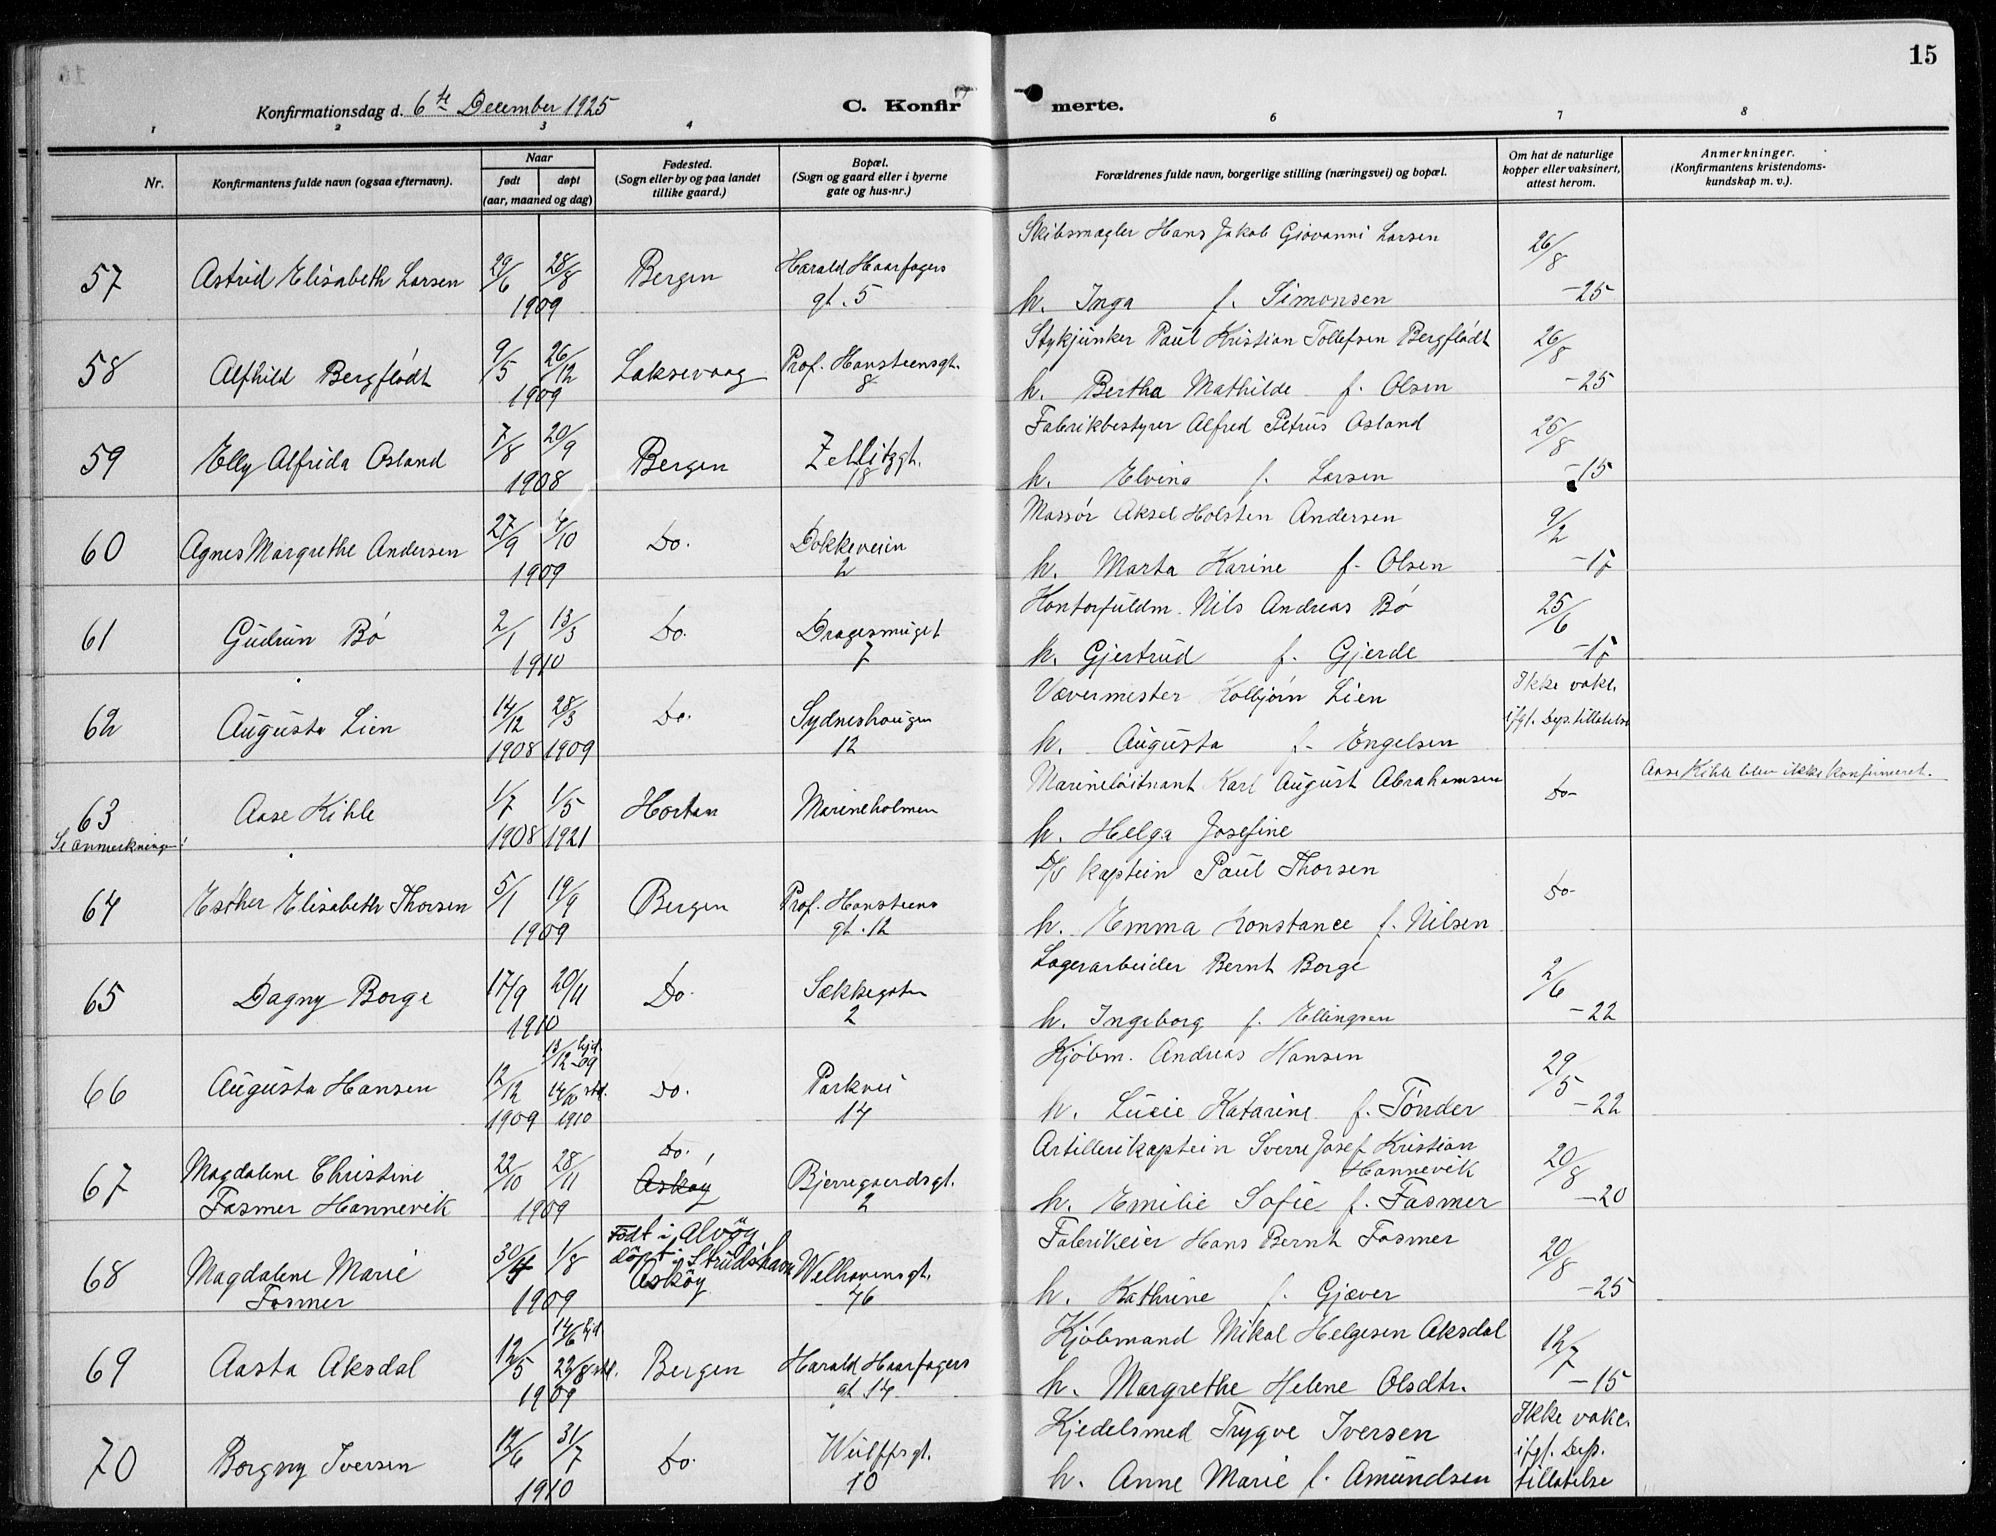 15
Konfirmationsdag d. 6te December 1925
C. Konfirmerte.
1 2 3 4 6 7 8
Nr.
Konfirmantens fulde navn (ogsaa efternavn).
Naar
født døpt
(aar, maaned og dag)
Fødested.
(Sogn eller by og paa landet
tillike gaard.)
Bopæl.
(Sogn og gaard eller i byerne
gate og hus-nr.)
Forældrenes fulde navn, borgerlige stilling (næringsvei) og bopæl.
Om hat de naturlige
kopper eller vaksinert,
attest herom.
Anmerkninger.
(Konfirmantens kristendoms-
kundskap m. v.).
Skibsmægler Hans Jakob Giovanni Larsen 26/8
57 Astrid Elisabeth Larsen 29/6 28/8 Bergen Harald Haarfagers
1909 gt. 5 h. Inga f. Simonsen -25
Stykjunker Paul Kristian Tollefsen Bergflødt 26/8
58 Alfhild Bergflødt 9/5 26/12 Laksevaag Prof. Hansteensgt.
1909 8 h. Bertha Mathilde f. Olsen -25
Fabrikbestyrer Alfred Petrus Osland 25/8
59 Elly Alfrida Osland 7/8 20/9 Bergen Zetlitzgt.
1908 18 h. Elvina f. Larsen -15
Massør Aksel Holsten Andersen 9/2
60 Agnes Margrethe Andersen 27/9 /10 Do. Dokkeveien
1909 2 h. Marta Karine f. Olsen
Kontorfuldm. Nils Andreas Bø 25/6
61 Gudrun Bø 2/1 13/3 Do. Dragesmuget
1910 7 h. Gjertrud f. Gjerde
Vævermester Kolbjørn Lien Ikke vakc.
62 Augusta Lien 14/12 28/3 Do. Sydneshaugen ifgl. Dep. tillatelse
1908 1909 12 h. Augusta f. Engelsen
Marineløitnant Karl August Abrahamsen do- Aase Kihle blev ikke konfirmeret.
63 Aase Kihle 1/7 1/5 Horten Marineholmen
Se anmerkningen! 1908 1921 h. Helga Josefine
D/S kaptein Paul Thorsen do-
64 Esther Elisabeth Thorsen 5/1 19/9 Bergen Prof. Hansteens
1909 gt. 12 h. Emma Konstance f. Nilsen
Lagerarbeider Bernt Borge 2/6
65 Dagny Borge 17/9 20/11 Do. Sækkegaten
1910 2 h. Ingeborg f. Ellingsen -22
13/12 hjd. -09 Kjøbm. Andreas Hansen 29/5
66 Augusta Hansen 12/12 14/10 std. Do. Parkvei
1909 1910 14 h. Lucie Katarine f. Tønder -22
Do. Artillerikaptein Sverre Josef Kristian
Hannevik 20/8
67 Magdalene Christine 22/10 28/11 Askøy Bjerregaardsgt.
Fasmer Hannevik 1909 2 h. Emilie Sofie f. Fasmer -20
Født i Alvøy Fabrikeier Hans Bernt Fasmer 20/8
døpt i Strudshavn
68 Magdalene Marie 30/4 1/8 Askøy Welhavensgt.
Fasmer 1909 76 h. Kathrine f. Gjæver -25
14/6 hjd. Kjøbmand Mikal Helgesen Aksdal 12/7
69 Aasta Aksdal 12/5 22/8 std. Bergen Harald Haarfagers
1909 gt. 14 h. Margrethe Helene Olsdtr. -15
Kjedelsmed Trygve Iversen Ikke vakc.
70 Borgny Iversen 12/6 31/7 Do. Wulffsgt. ifgl. Dep.
1910 10 h. Anne Marie f. Amundsen tillatelse